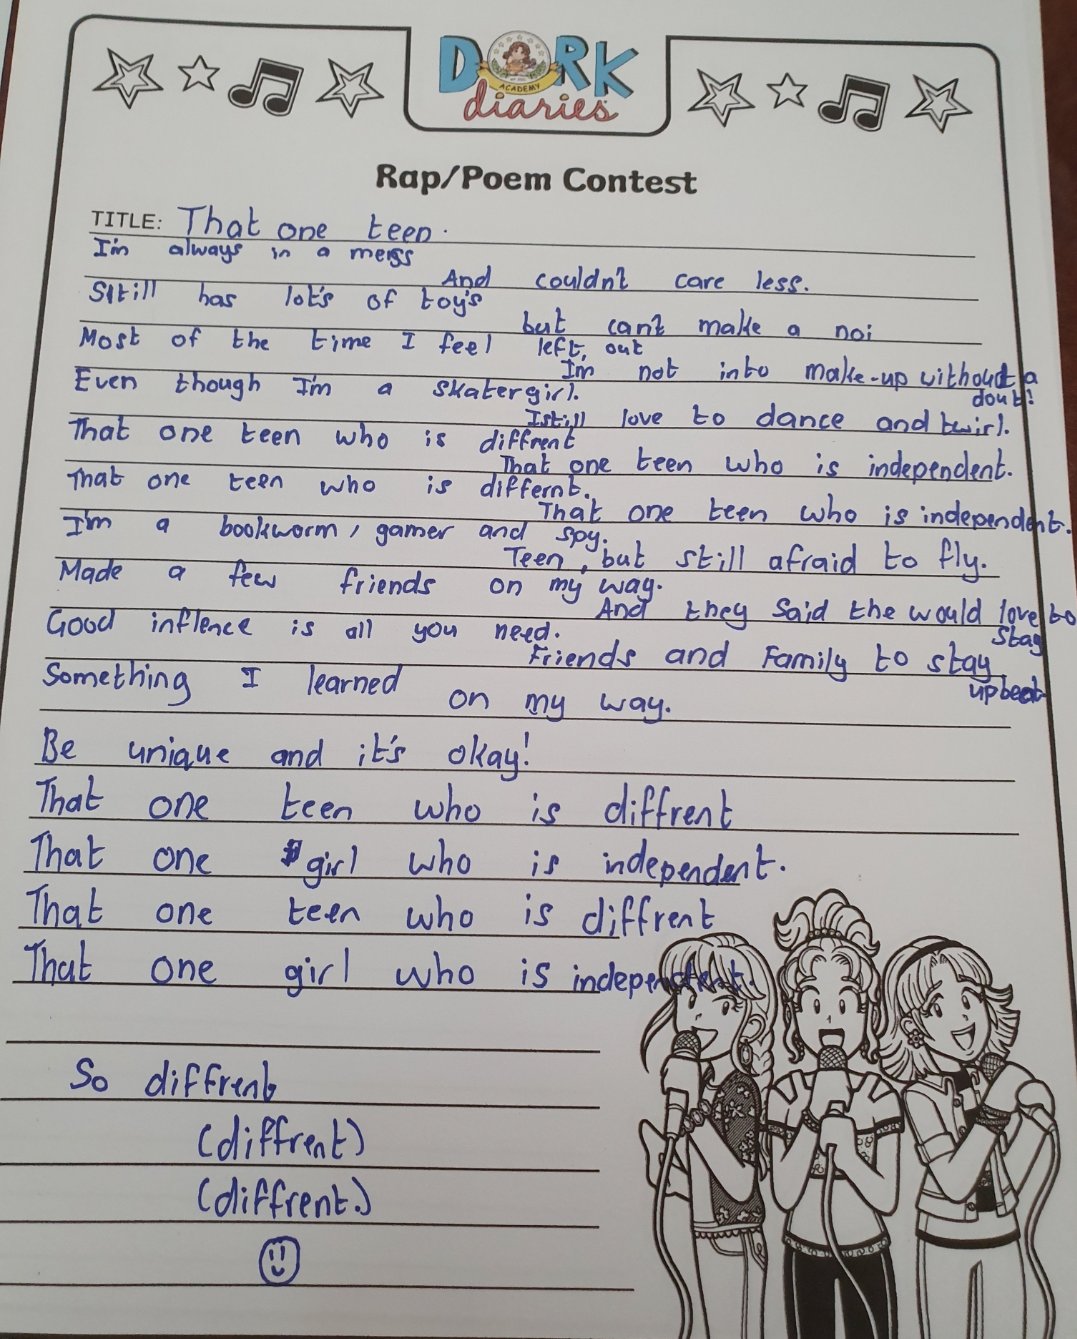 DORK
ACADEMY
diaries
Rap/Poem Contest
TITLE: That one teen.
I'm always in a mess
And couldn't care less.
Still has lot's of toy's
but can't make a noi
Most of the time I feel left, out
I'm not into make-up without a
dout!
Even though I'm a skatergirl.
I still love to dance and twirl.
That one teen who is diffrent
That one teen who is independent.
That one teen who is differnt.
That one teen who is independent.
I'm a bookworm, gamer and spy.
Teen, but still afraid to fly.
Made a few friends on my way.
And they said the would love to
stay
Good inflence is all you need.
Friends and Family to stay
upbeat
Something I learned on my way.
Be unique and it's okay!
That one teen who is diffrent
That one girl who is independent.
That one teen who is diffrent
That one girl who is independent.
So diffrent
(diffrent)
(diffrent.)